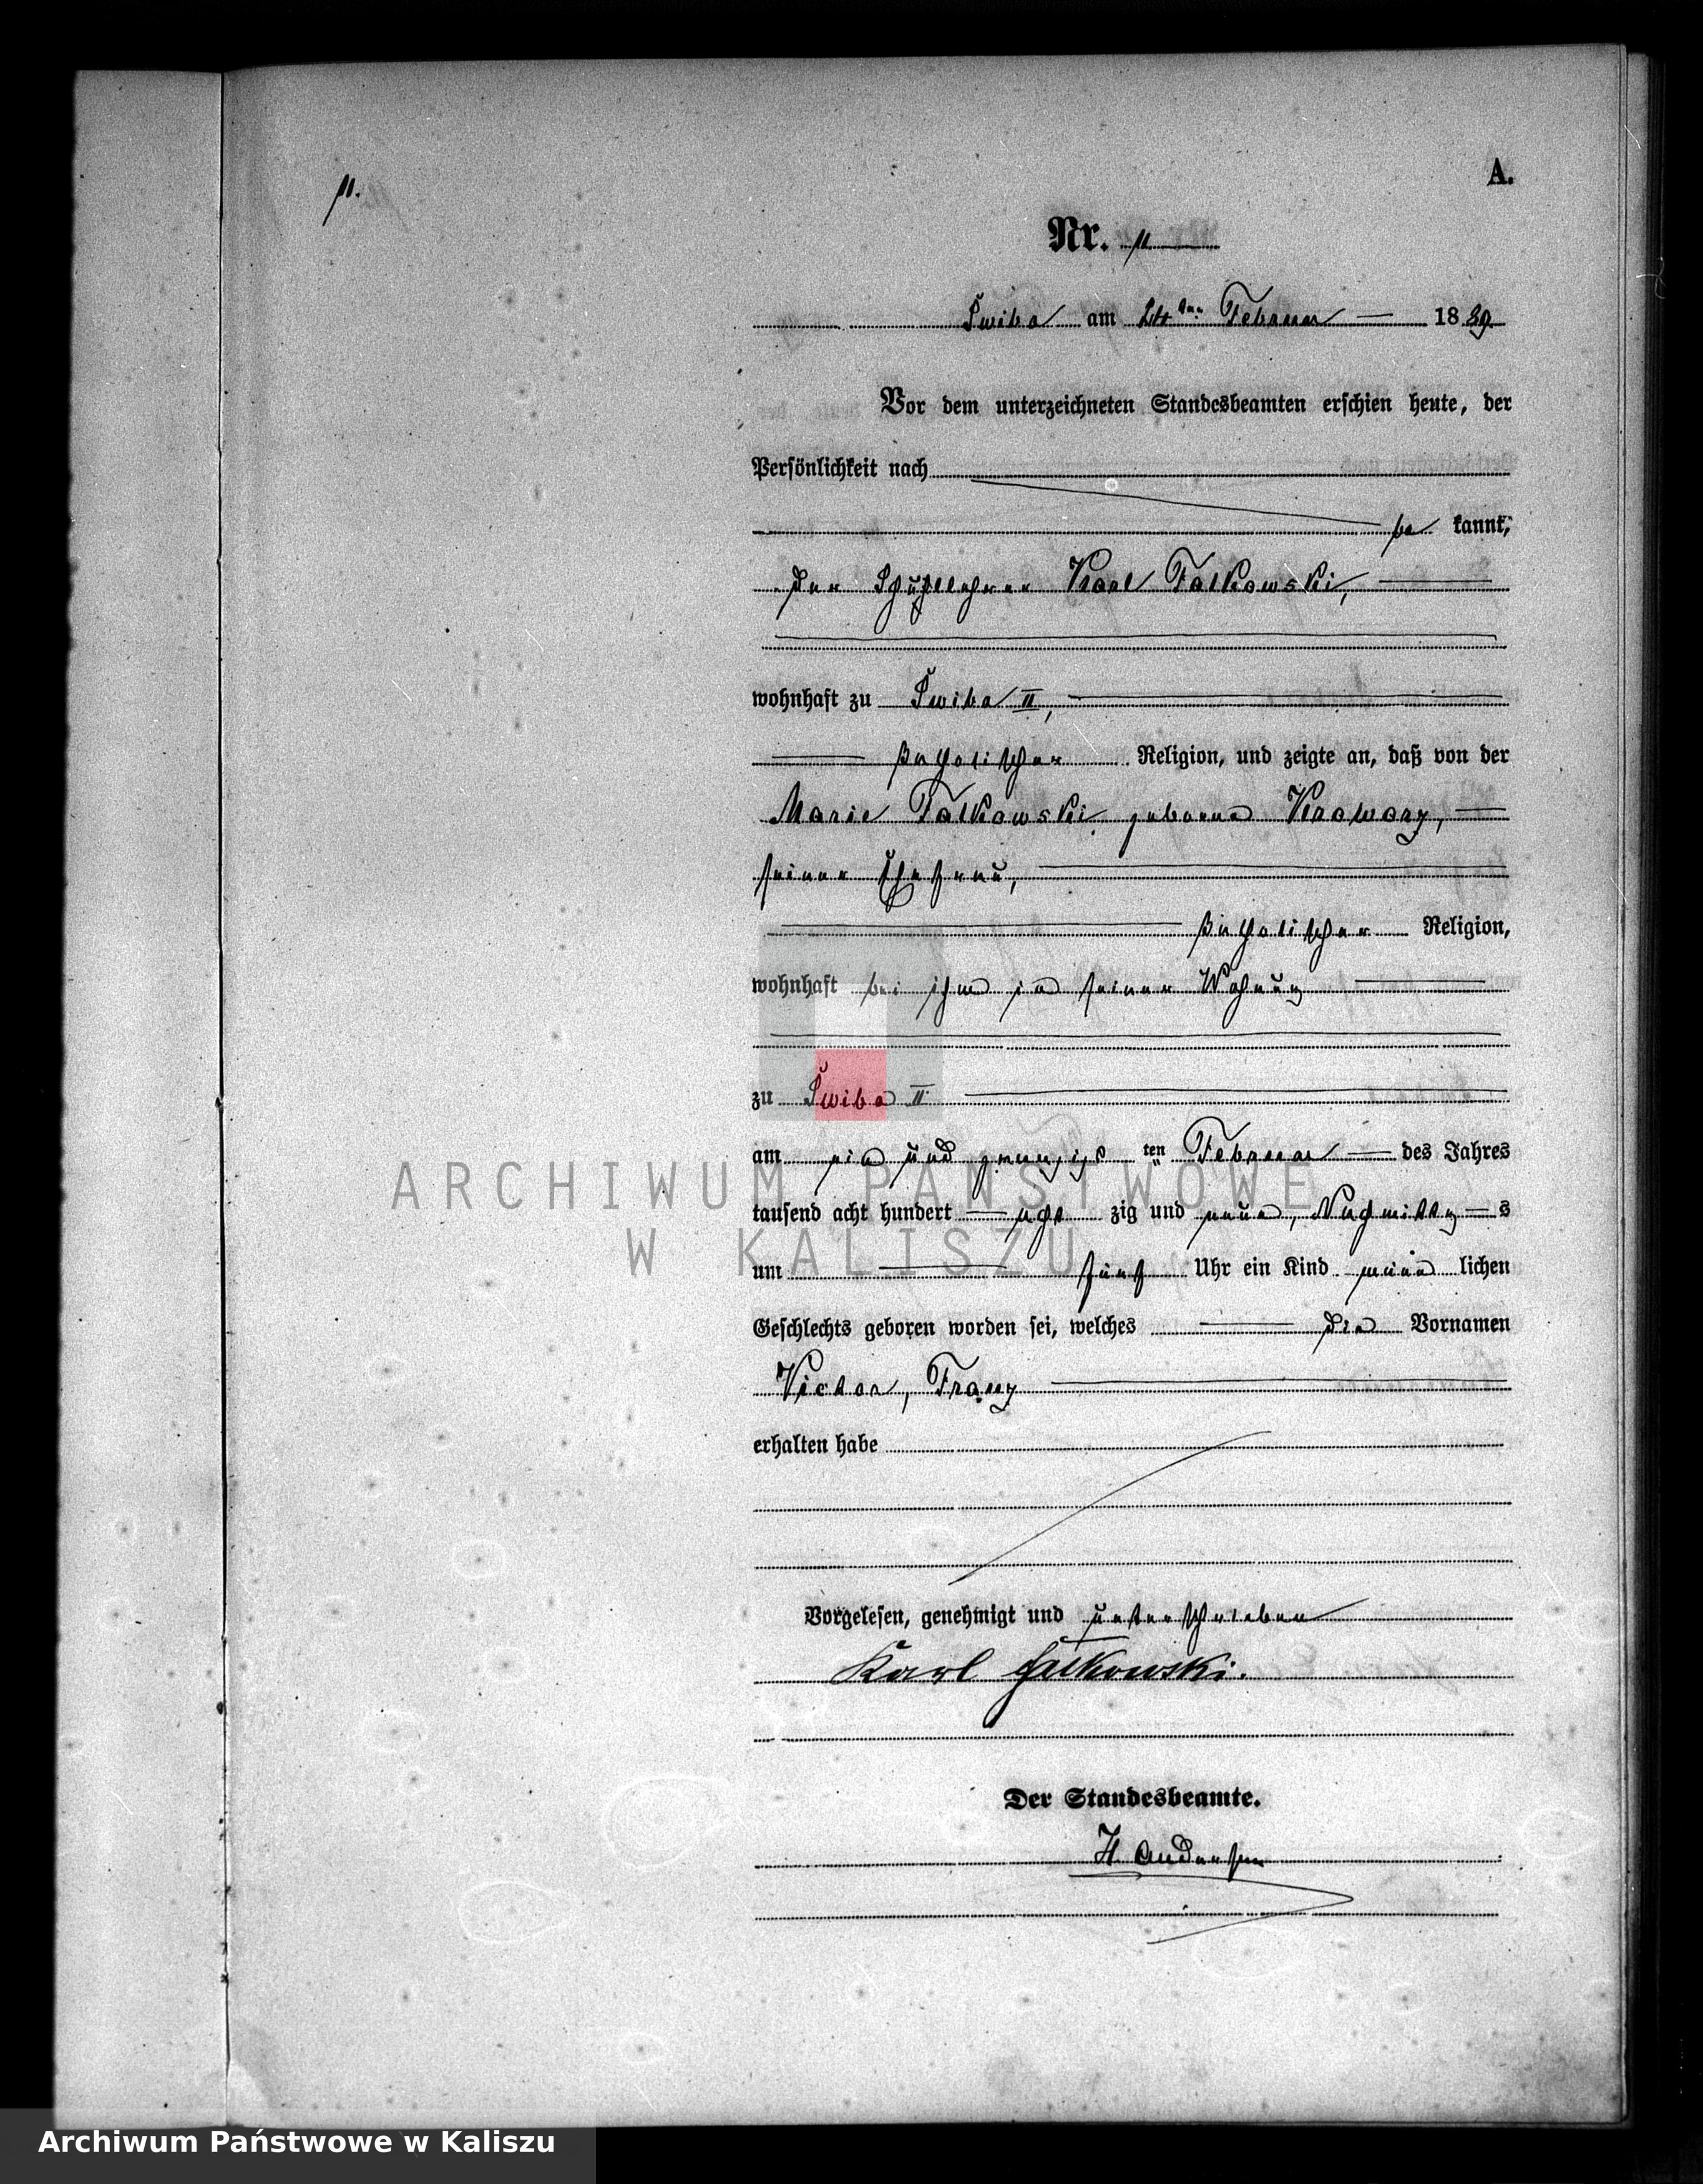 A.
11.
Nr. 11
Swiba am 24ten Februar 1889.
Vor dem unterzeichneten Standesbeamten erschien heute, der
Persönlichkeit nach
be kannt,
der Schullehrer Karl Falkowski,
wohnhaft zu Swiba II,
katholischer Religion, und zeigte an, daß von der
Marie Falkowski geborene
seiner Ehefrau,
katholischer Religion,
wohnhaft bei ihm in seiner Wohnung
zu Swiba II
am ein und zwanzigs ten Februar des Jahres
tausend acht hundert acht zig und neun, Nachmittag s
um fünf Uhr ein Kind männ lichen
Geschlechts geboren worden sei, welches die Vornamen
Victor, Franz
erhalten habe
Vorgelesen, genehmigt und unterschrieben
Karl Falkowski.
Der Standesbeamte.
H Andersen
ARCHIWUM PAŃSTWOWE
W KALISZU
Archiwum Państwowe w Kaliszu